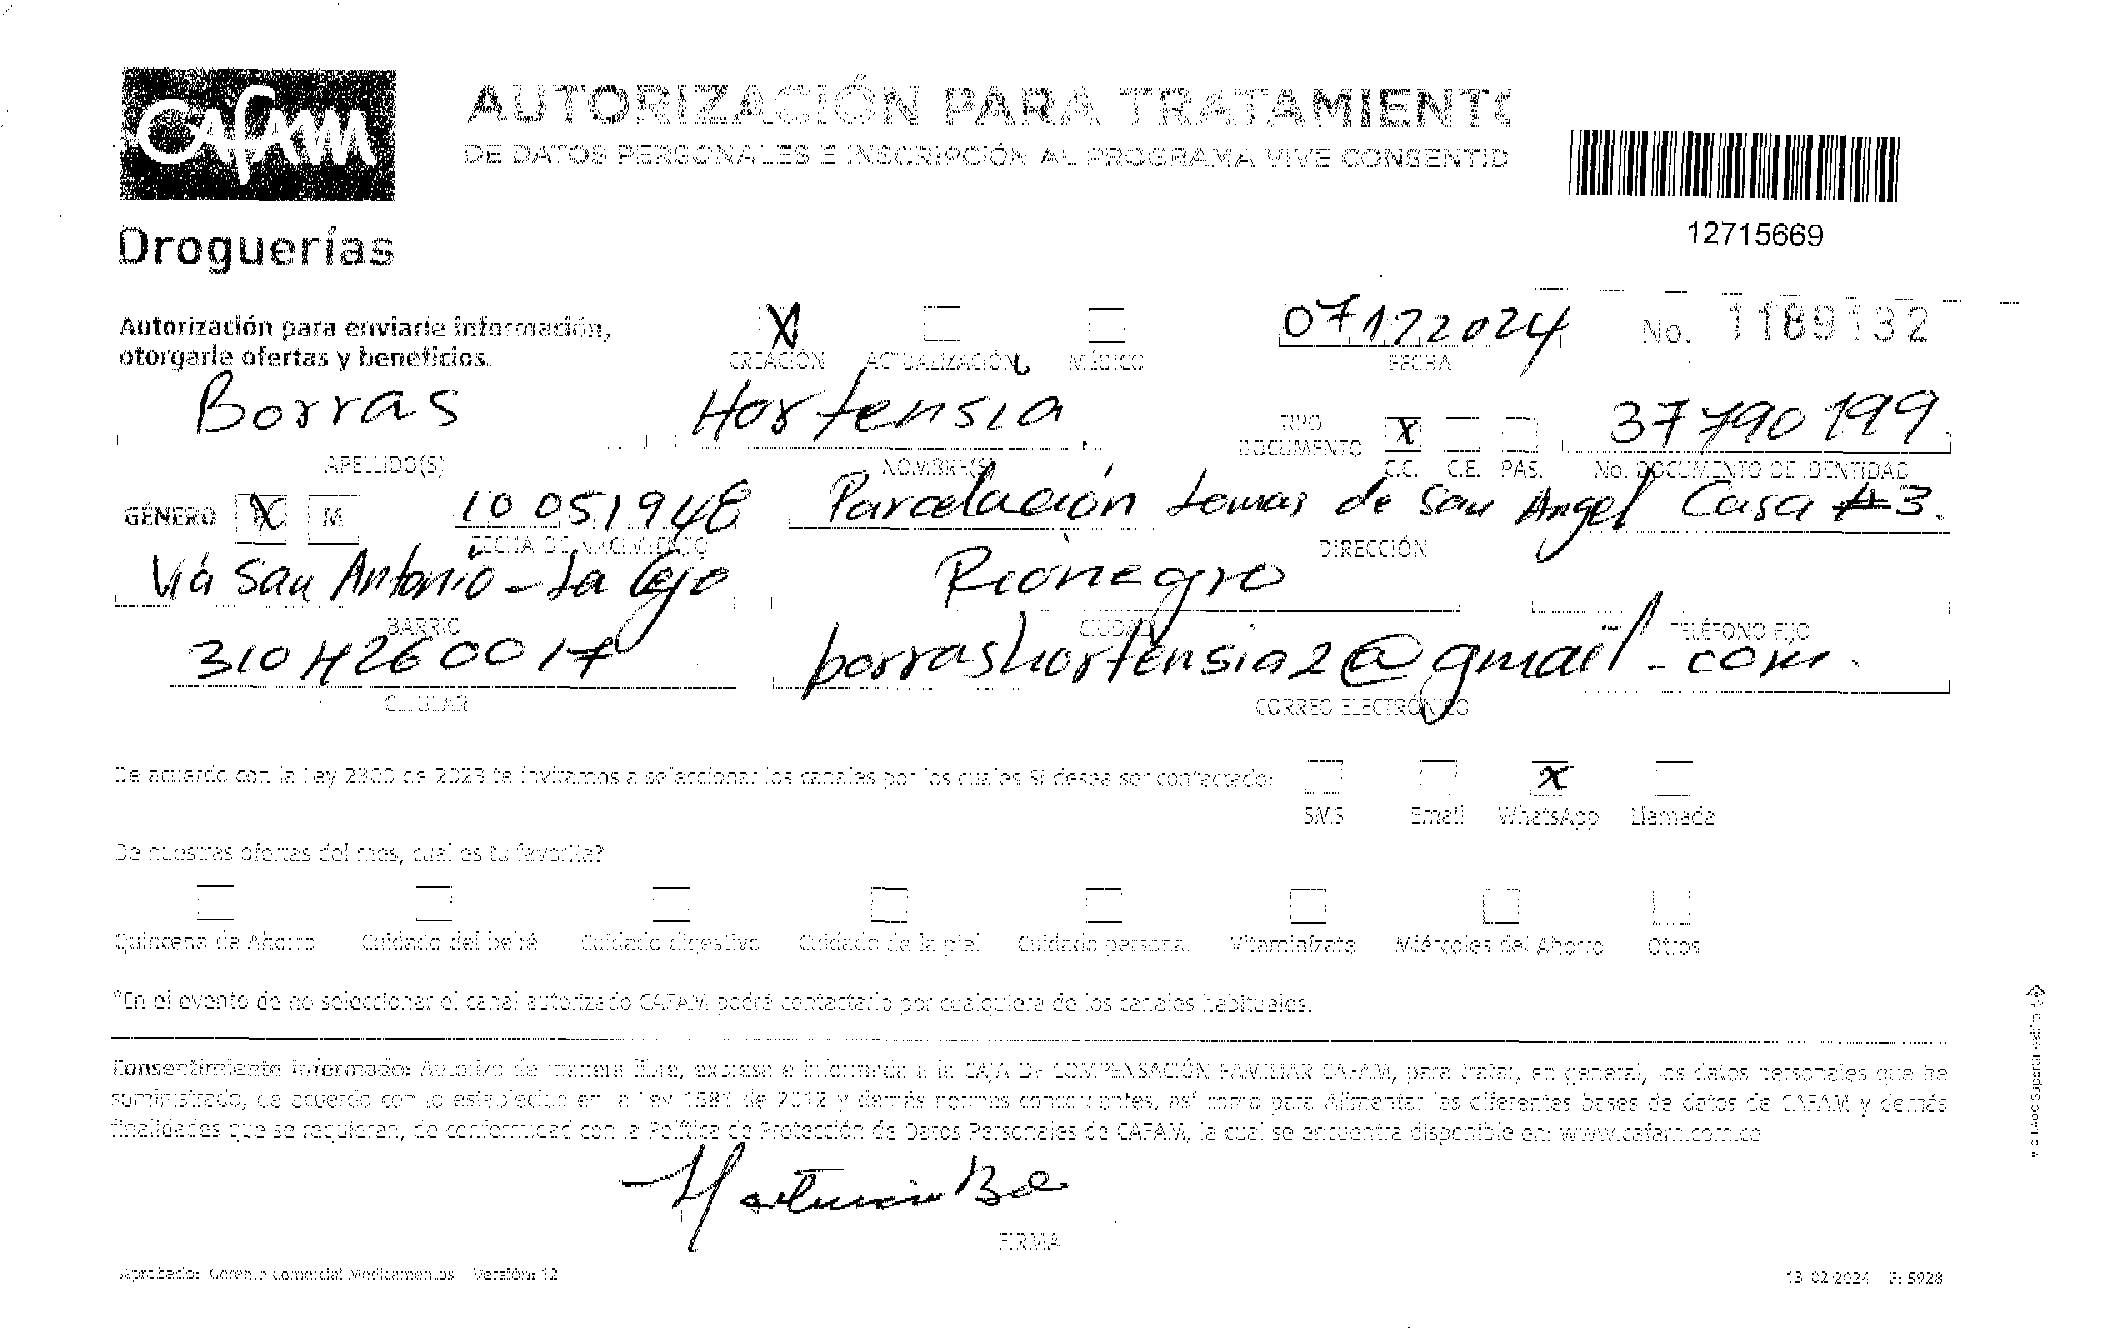 CAFAM
Droguerías
AUTORIZACIÓN PARA TRATAMIENTO
DE DATOS PERSONALES E INSCRIPCIÓN AL PROGRAMA VIVE CONSENTID
12715669
Autorización para enviarle información,
otorgarle ofertas y beneficios.
X
CREACIÓN ACTUALIZACIÓN MÉDICO
07122024
FECHA
No. 1189132
Borras Hortensia
APELLIDO(S) NOMBRE(S)
TIPO DOCUMENTO X C.C. C.E. PAS.
37790199
No. DOCUMENTO DE IDENTIDAD
GÉNERO X M 10051948 Parcelación Lomas de San Angel Casa #3.
FECHA DE NACIMIENTO DIRECCIÓN
Vía San Antonio - La Ceja Rionegro
BARRIO CIUDAD TELÉFONO FIJO
3104260017 borrashortensia2@gmail.com.
CELULAR CORREO ELECTRÓNICO
De acuerdo con la Ley 2300 de 2023 te invitamos a seleccionar los canales por los cuales SI desea ser contactado: X
SMS Email WhatsApp Llamada
De nuestras ofertas del mes, cual es tu favorita?
Quincena de Ahorro Cuidado del bebé Cuidado digestivo Cuidado de la piel Cuidado personal Vitamínizate Miércoles del Ahorro Otros
*En el evento de no seleccionar el canal autorizado CAFAM podrá contactarlo por cualquiera de los canales habituales.
Consentimiento Informado: Autorizo de manera libre, expresa e informada a la CAJA DE COMPENSACIÓN FAMILIAR CAFAM, para tratar, en general, los datos personales que he
suministrado, de acuerdo con lo establecido en la Ley 1581 de 2012 y demás normas concordantes, así como para Alimentar las diferentes bases de datos de CAFAM y demás
finalidades que se requieran, de conformidad con la Política de Protección de Datos Personales de CAFAM, la cual se encuentra disponible en: www.cafam.com.co
FIRMA
Aprobado: Gerente Comercial Medicamentos Versión: 12
13-02-2024 F: 5928